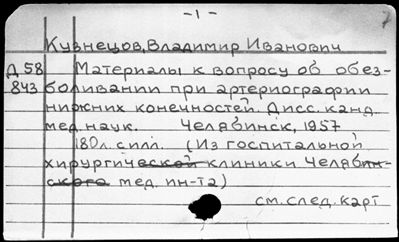 -1-
7
Кузнецов, Владимир Иванович
Д 58 Материалы к вопросу об обез-
843 боливании при артериографии
нижних конечностей. Дисс. канд.
мед. наук. Челябинск, 1957
180л. с илл. (Из госпитальной
хирургической клиники Челябин-
ского мед. ин-та)
см. след. карт